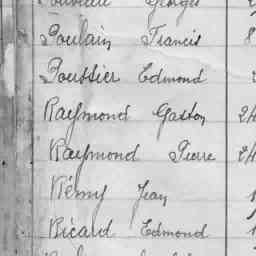 Georges
Poulain Francis 8
Poussier Edmond
Raymond Gaston 24
Raymond Pierre 24
Rémy Jean 1
Ricard Edmond 1